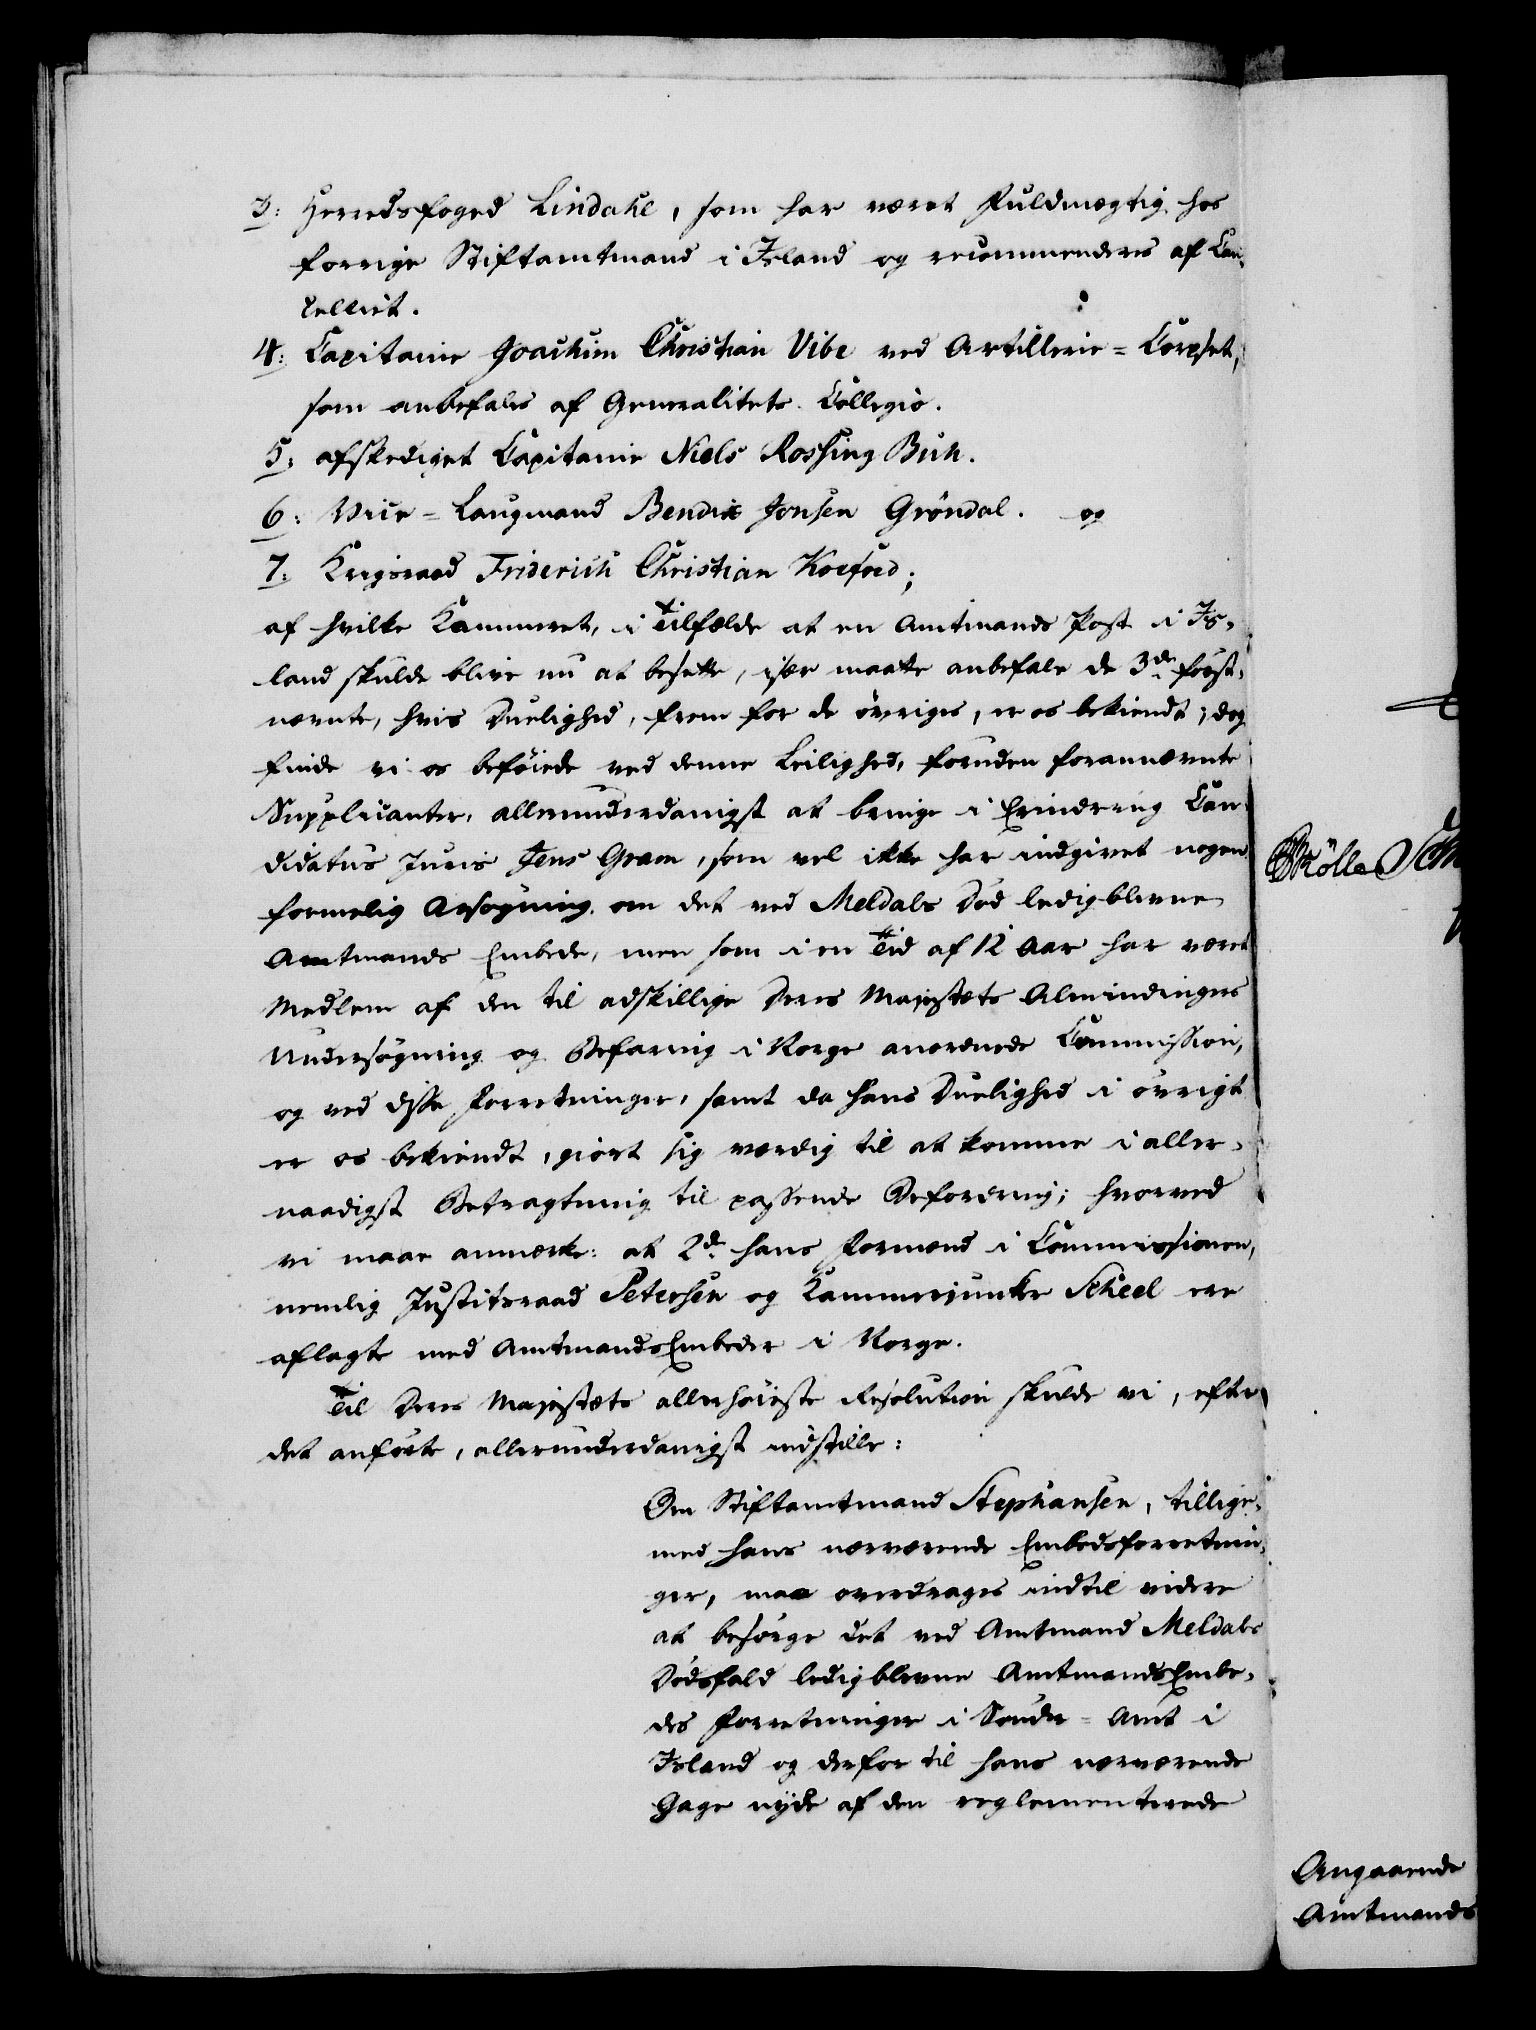 3: Herredsfoged Lindahl, som har været Fuldmægtig hos
forrige Stiftamtmand i Island og recommenderes af Can¬
celliet.
4: Capitaine Joachim Christian Vibe ved Artillerie=Corpset,
som anbefales af Generalitets-Collegio.
5: afskediget Capitaine Niels Rossing Buch.
6: Vice=Laugmand Bendix Jonsen Gröndal. og
7: Krigsraad Friderich Christian Koefoed;
af hvilke Kammeret, i Tilfælde at en Amtmands Post i Is¬
land skulde blive nu at besette, især maatte anbefale de 3de först¬
nævnte, hvis Duelighed, frem for de övriges, er os bekiendt; dog
finde vi os beföiede ved denne Leilighed, foruden forannævnte
Supplicanter, allerunderdanigst at bringe i Erindring Can¬
didatus Juris Jens Gram, som vel ikke har indgivet nogen
formelig Ansögning om det ved Meldals Död ledigblevne
Amtmands Embede, men som i en Tid af 12 Aar har været
Medlem af den til adskillige Deres Majestæts Almindingers
Undersögning og Befaring i Norge anordnede Commission,
og ved disse Forretninger, samt da hans Duelighed i övrigt
er os bekiendt, giort sig værdig til at komme i aller¬
naadigst Betragtning til passende Befordring; hvorved
vi maae anmærke: at 2de hans Formænd i Commissionen,
nemlig Justitsraad Petersen og Kammerjunker Scheel ere
aflagte med Amtmands Embeder i Norge.
Til Deres Majestæts allerhöieste Resolution skulde vi, efter
det anförte, allerunderdanigst indstille:
Om Stiftamtmand Stephansen, tillige¬
med hans nærværende Embedsforretnin¬
ger, maa overdrages indtil videre
at besörge det ved Amtmand Meldals
Dödsfald ledigblevne Amtmands Embe¬
des Forretninger i Sönder=Amt i
Island og derfor til hans nærværende
Gage nyde af den reglementerede
Angaaende
Amtmands